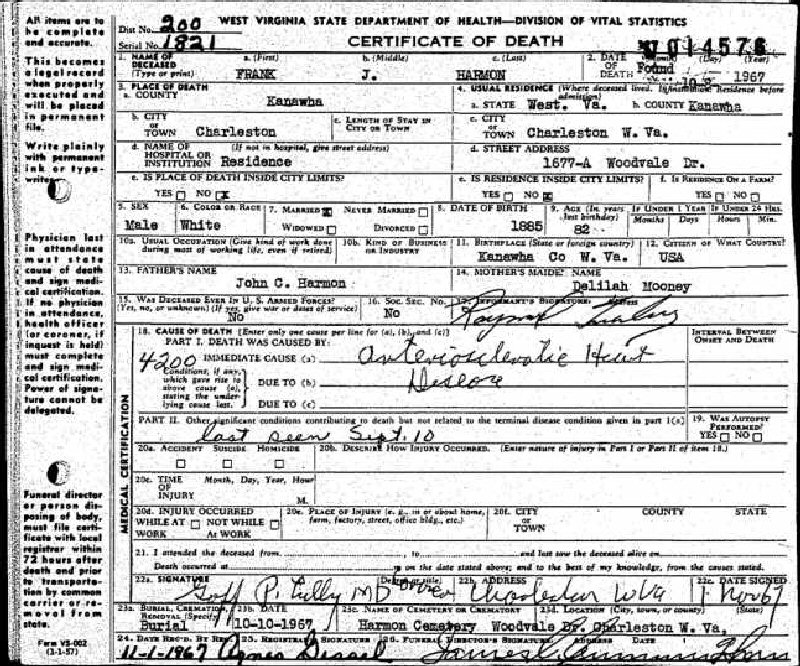 WEST VIRGINIA STATE DEPARTMENT OF HEALTH—DIVISION OF VITAL STATISTICS
Dist No. 200
Serial No. 1821
CERTIFICATE OF DEATH
014576
1. NAME OF DECEASED (Type or print) a. (First) FRANK b. (Middle) J. c. (Last) HARMON
2. DATE OF DEATH Found (Day) (Year) 1967
3. PLACE OF DEATH
a. COUNTY Kanawha
4. USUAL RESIDENCE (Where deceased lived. If institution: Residence before admission)
a. STATE West. Va. b. COUNTY Kanawha
b. CITY OR TOWN Charleston
c. LENGTH OF STAY IN CITY OR TOWN
c. CITY OR TOWN Charleston W. Va.
d. NAME OF HOSPITAL OR INSTITUTION (If not in hospital, give street address) Residence
d. STREET ADDRESS 1677-A Woodvale Dr.
e. IS PLACE OF DEATH INSIDE CITY LIMITS?
YES NO X
e. IS RESIDENCE INSIDE CITY LIMITS?
YES NO X
f. IS RESIDENCE ON A FARM?
YES NO
5. SEX Male
6. COLOR OR RACE White
7. MARRIED X NEVER MARRIED
WIDOWED DIVORCED
8. DATE OF BIRTH 1885
9. AGE (In years last birthday) 82
IF UNDER 1 YEAR Months Days
IF UNDER 24 HRS. Hours Min.
10a. USUAL OCCUPATION (Give kind of work done during most of working life, even if retired)
10b. KIND OF BUSINESS OR INDUSTRY
11. BIRTHPLACE (State or foreign country) Kanawha Co W. Va.
12. CITIZEN OF WHAT COUNTRY? USA
13. FATHER'S NAME John C. Harmon
14. MOTHER'S MAIDEN NAME Delilah Mooney
15. WAS DECEASED EVER IN U. S. ARMED FORCES?
(Yes, no, or unknown) (If yes, give war or dates of service)
No
16. SOC. SEC. NO.
No
17. INFORMANT'S SIGNATURE Address
18. CAUSE OF DEATH [Enter only one cause per line for (a), (b), and (c)]
INTERVAL BETWEEN ONSET AND DEATH
PART I. DEATH WAS CAUSED BY:
4200 IMMEDIATE CAUSE (a) Arteriosclerotic Heart
Conditions, if any, which gave rise to above cause (a), stating the underlying cause last.
DUE TO (b) Disease
DUE TO (c)
PART II. Other significant conditions contributing to death but not related to the terminal disease condition given in part I(a)
last seen Sept. 10
19. WAS AUTOPSY PERFORMED?
YES NO
MEDICAL CERTIFICATION
20a. ACCIDENT SUICIDE HOMICIDE
20b. DESCRIBE HOW INJURY OCCURRED. (Enter nature of injury in Part I or Part II of item 18.)
20c. TIME OF INJURY Month, Day, Year, Hour
M.
20d. INJURY OCCURRED
WHILE AT WORK NOT WHILE AT WORK
20e. PLACE OF INJURY (e. g., in or about home, farm, factory, street, office bldg., etc.)
20f. CITY OR TOWN COUNTY STATE
21. I attended the deceased from , to and last saw the deceased alive on
Death occurred at on the date stated above; and to the best of my knowledge, from the causes stated.
22a. SIGNATURE (Degree or title) MD
22b. ADDRESS Charleston W Va
22c. DATE SIGNED 1 Nov 67
23a. BURIAL, CREMATION, REMOVAL (Specify) Burial
23b. DATE 10-10-1967
23c. NAME OF CEMETERY OR CREMATORY Harmon Cemetery
23d. LOCATION (City, town, or county) (State) Woodvale Dr. Charleston W. Va.
24. DATE REC'D. BY REG. 11-1-1967
25. REGISTRAR'S SIGNATURE Agnes
26. FUNERAL DIRECTOR'S SIGNATURE ADDRESS DATE
James
All items are to be complete and accurate.
This becomes a legal record when properly executed and will be placed in permanent file.
Write plainly with permanent ink or typewriter
Physician last in attendance must state cause of death and sign medical certification. If no physician in attendance, health officer (or coroner, if inquest is held) must complete and sign medical certification. Power of signature cannot be delegated.
Funeral director or person disposing of body, must file certificate with local registrar within 72 hours after death and prior to transportation by common carrier or removal from state.
Form VS-002
(1-1-57)